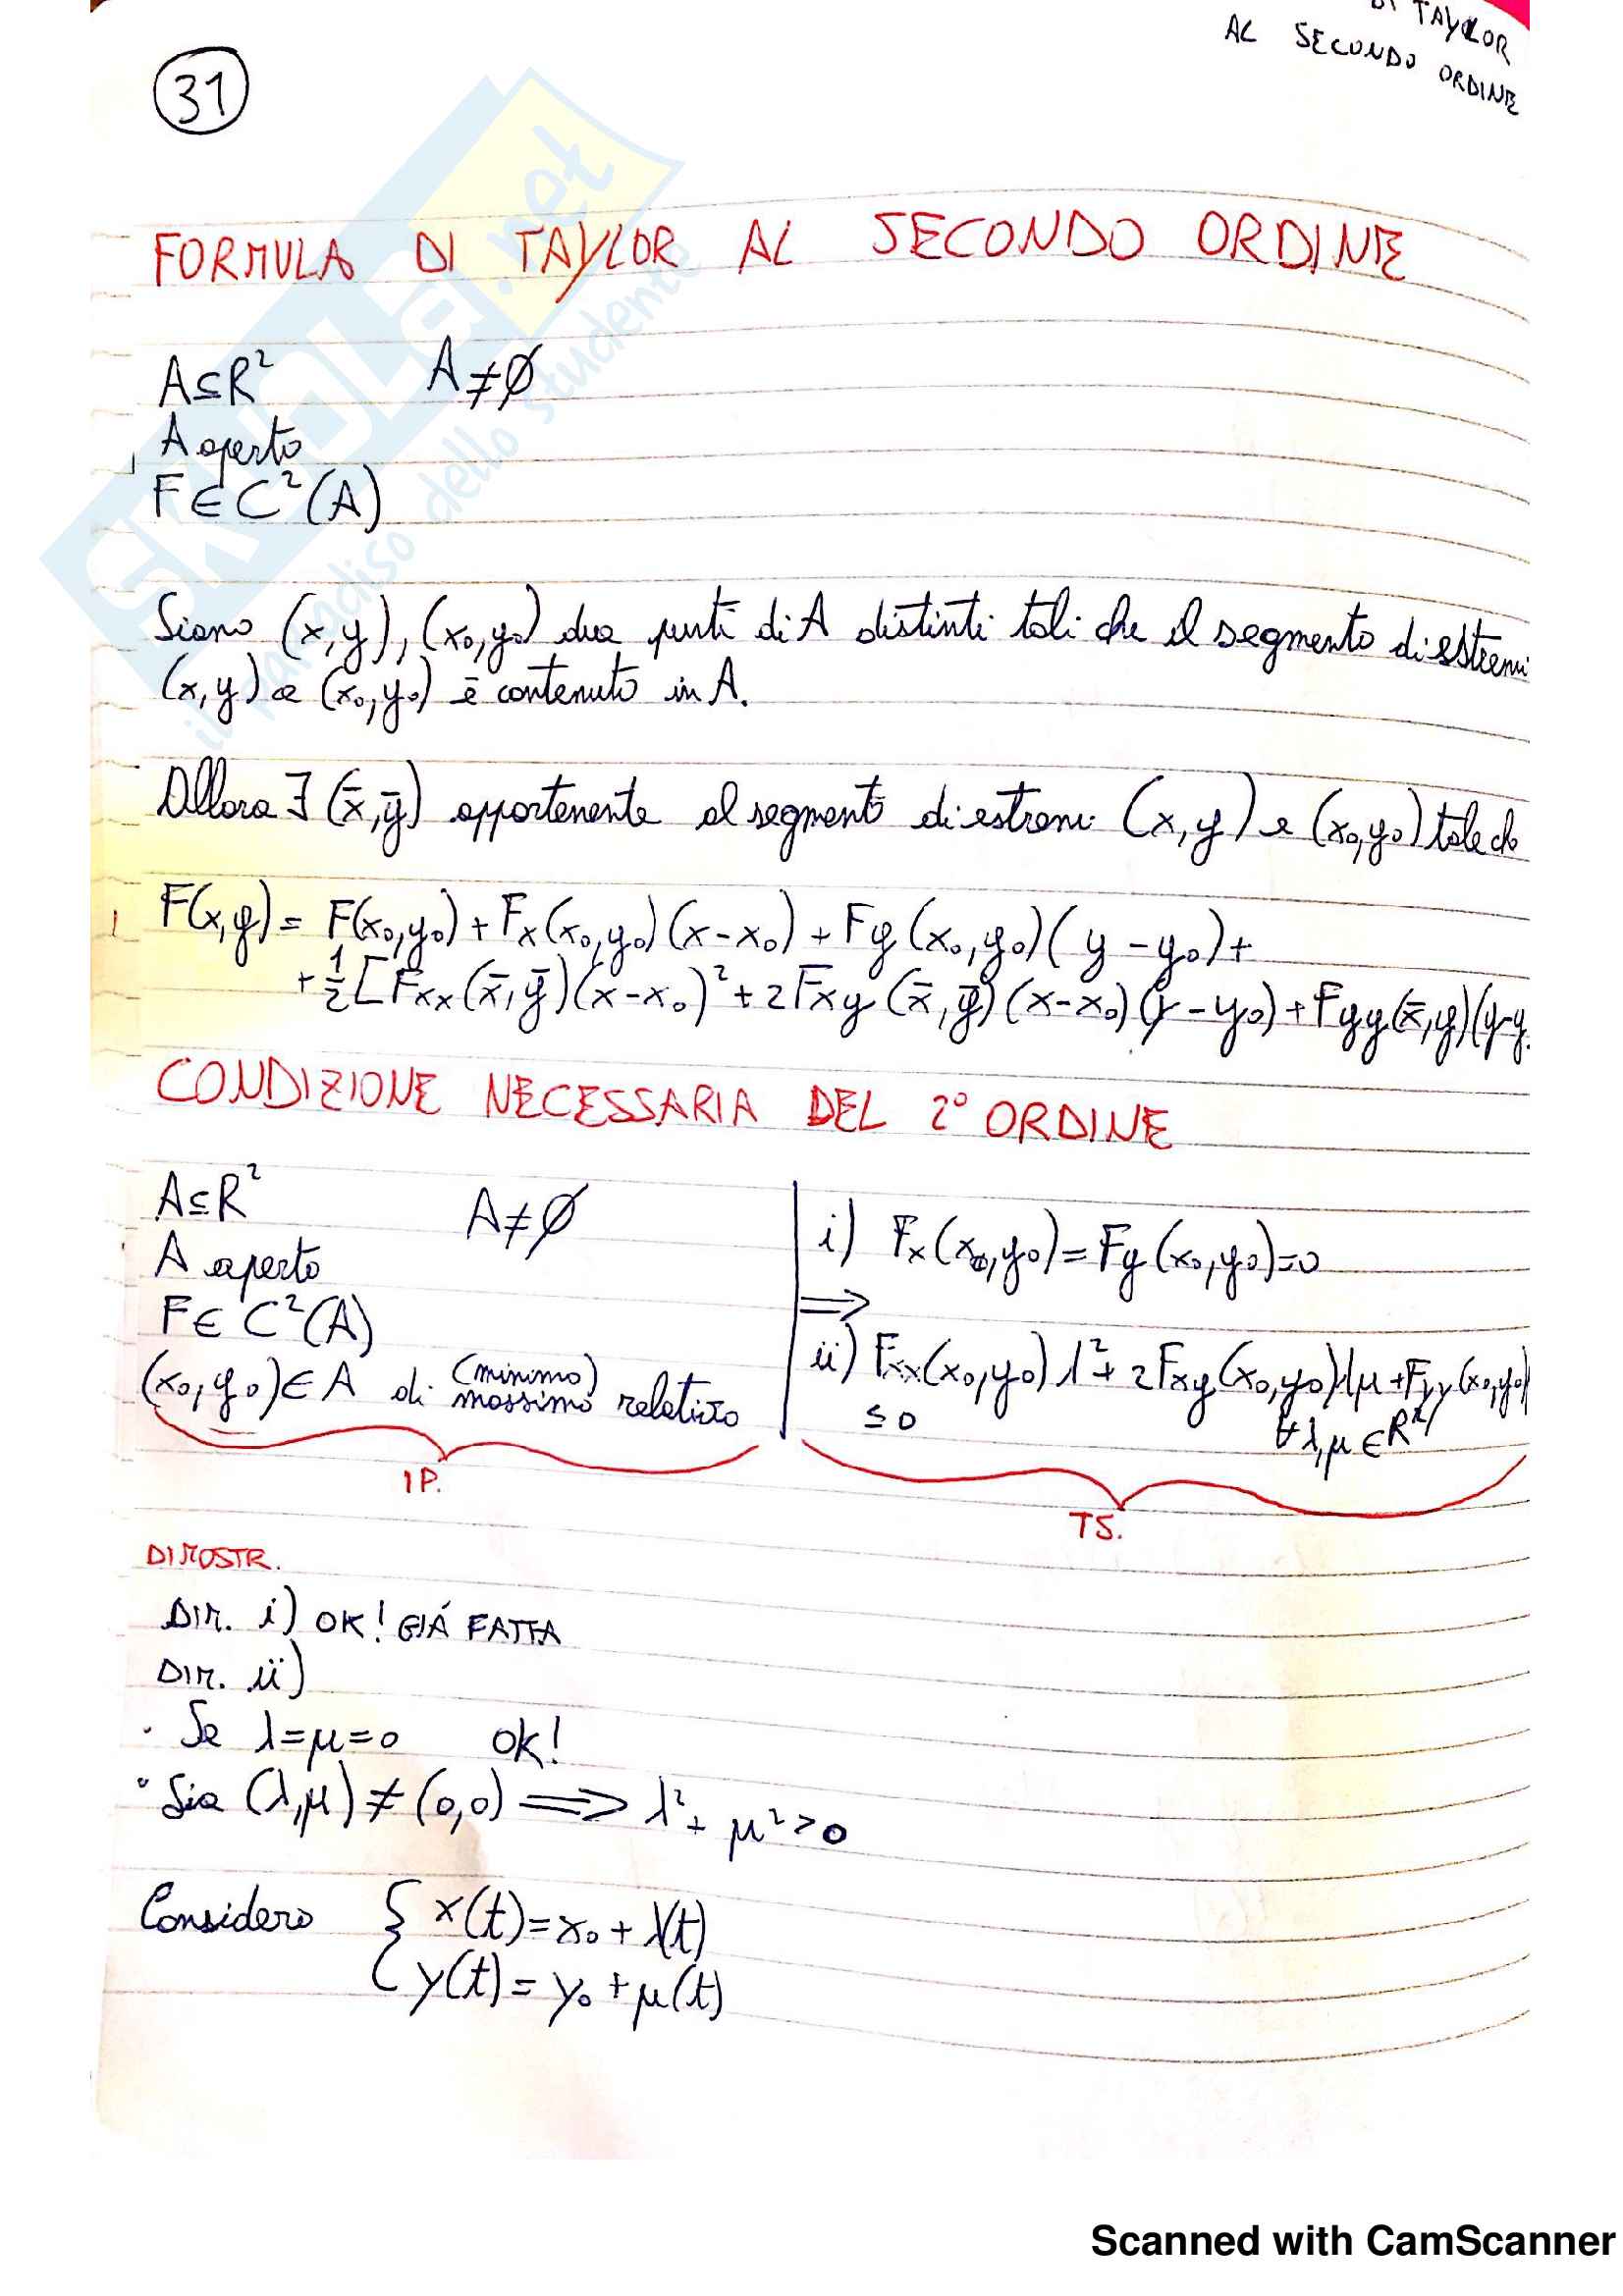 DI TAYLOR
AL SECONDO ORDINE
31
FORMULA DI TAYLOR AL SECONDO ORDINE
A⊆R² A≠∅
A aperto
F∈C²(A)
Siano (x,y), (x₀,y₀) due punti di A distinti tali che il segmento di estremi
(x,y) e (x₀,y₀) è contenuto in A.
Allora ∃ (x̄,ȳ) appartenente al segmento di estremi (x,y) e (x₀,y₀) tale che
F(x,y) = F(x₀,y₀) + Fx(x₀,y₀)(x-x₀) + Fy(x₀,y₀)(y-y₀) +
+ 1/2 [Fxx(x̄,ȳ)(x-x₀)² + 2Fxy(x̄,ȳ)(x-x₀)(y-y₀) + Fyy(x̄,ȳ)(y-y
CONDIZIONE NECESSARIA DEL 2° ORDINE
A⊆R² A≠∅
A aperto
F∈C²(A)
(x₀,y₀)∈A di (minimo) massimo relativo
IP.
⟹
i) Fx(x₀,y₀)=Fy(x₀,y₀)=0
ii) Fxx(x₀,y₀)λ²+2Fxy(x₀,y₀)λμ+Fyy(x₀,y₀)
≤0 ∀λ,μ∈R
TS.
DIMOSTR.
DIM. i) OK! GIÁ FATTA
DIM. ii)
· Se λ=μ=0 OK!
· Sia (λ,μ)≠(0,0) ⟹ λ²+μ²>0
Considero { x(t)=x₀+λ(t)
y(t)=y₀+μ(t)
SKUOLA.net
il paradiso dello studente
Scanned with CamScanner